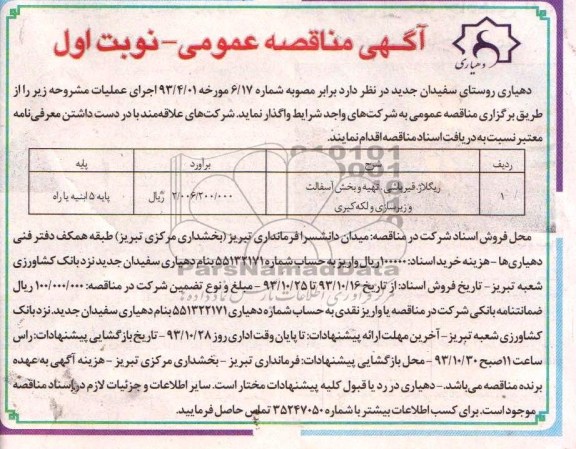 آگهی مناقصه عمومی - نوبت اول
دهیاری
دهیاری روستای سفیدان جدید در نظر دارد برابر مصوبه شماره ۶/۱۷ مورخه ۹۳/۴/۰۱ اجرای عملیات مشروحه زیر را از
طریق برگزاری مناقصه عمومی به شرکت‌های واجد شرایط واگذار نماید. شرکت‌های علاقه‌مند با در دست داشتن معرفی‌نامه
معتبر نسبت به دریافت اسناد مناقصه اقدام نمایند.
ردیف شرح برآورد پایه
۱ ریگلاژ قیرپاشی ،تهیه و پخش آسفالت ۲/۰۰۶/۲۰۰/۰۰۰ ریال پایه ۵ ابنیه یا راه
و زیرسازی و لکه‌گیری
محل فروش اسناد شرکت در مناقصه: میدان دانشسرا فرمانداری تبریز (بخشداری مرکزی تبریز) طبقه همکف دفتر فنی
دهیاری‌ها - هزینه خرید اسناد: ۱۰۰۰۰۰ ریال واریز به حساب شماره ۵۵۱۳۲۲۱۷۱ بنام دهیاری سفیدان جدید نزد بانک کشاورزی
شعبه تبریز - تاریخ فروش اسناد: از تاریخ ۹۳/۱۰/۱۶ تا ۹۳/۱۰/۲۵ - مبلغ و نوع تضمین شرکت در مناقصه: ۱۰۰/۰۰۰/۰۰۰ ریال
ضمانتنامه بانکی شرکت در مناقصه یا واریز نقدی به حساب شماره دهیاری ۵۵۱۳۲۲۱۷۱ بنام دهیاری سفیدان جدید. نزد بانک
کشاورزی شعبه تبریز - آخرین مهلت ارائه پیشنهادات: تا پایان وقت اداری روز ۹۳/۱۰/۲۸ - تاریخ بازگشایی پیشنهادات: راس
ساعت ۱۱صبح ۹۳/۱۰/۳۰ - محل بازگشایی پیشنهادات: فرمانداری تبریز - بخشداری مرکزی تبریز - هزینه آگهی به عهده
برنده مناقصه می‌باشد. - دهیاری در رد یا قبول کلیه پیشنهادات مختار است. سایر اطلاعات و جزئیات لازم در اسناد مناقصه
موجود است. برای کسب اطلاعات بیشتر با شماره ۳۵۲۴۷۰۵۰ تماس حاصل فرمایید.
ParsNamadData